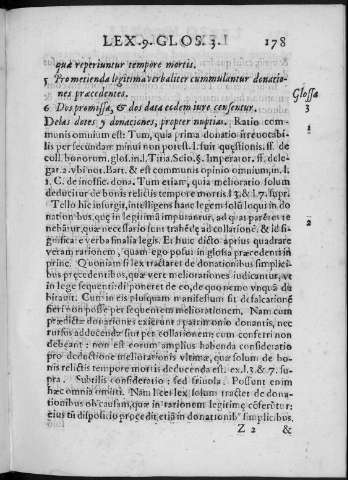 LEX.9.GLOS.3. 178
quæ reperiuntur tempore mortis.
5 Promettenda legitima verbaliter cummulantur donatio-
nes præcedentes. Glossa
6 Dos promissa, & dos data eodem iure censentur. 3
Delas dotes y donaciones, propter nuptias. Ratio com- 1
munis omnium est: Tum, quia prima donatio irreuocabi-
lis per secundam minui non potest. l. sui quęstionis. ff. de
coll. bonorum. glos. in l. Titia. Seio. §. Imperator. ff. dele-
gat. 2. vbi not. Bart. & est communis opinio omnium, in l.
1. C. de inoffic. dona. Tum etiam, quia melioratio solum
deducitur de bonis relictis tempore mortis. l 3. & l 7. supr.
Tello hic insurgit, intelligens hanc legem solũ loqui in do
nationibus, quę in legitimã imputantur, ad quas parẽtes te 2
nebãtur, quæ necessario sunt trahẽdę ad collationẽ, & id si-
gnificãt verba finalia legis. Et huic dicto aprius quadrare
veram rationem, quam ego posui in glossa præcedenti in
princ. Quoniam si lex tractaret de donationibus simplici-
bus pręcedentibus, quæ vere meliorationes iudicantur, vt
in lege sequenti: disponeret de eo, de quo nemo vnquã du
bitauit. Cum in eis plusquam manifestum sit defalcationẽ
fieri non posse per sequentem meliorationem, Nam cum
prædictæ donationes exierunt a patrimonio donantis, nec
rursus adducendæ sint per collationem: cum conferri non
debeant: non est eorum amplius habenda consideratio
pro deductione meliorationis vltimæ, quæ solum de bo-
nis relictis tempore mortis deducenda est. ex. l. 3. & 7. su-
pra. Subtilis consideratio: sed friuola. Possunt enim
hæc omnia omitti. Nam licet lex solum tractet de dona-
tionibus ob causam, quæ in rationem legitimę cõferũtur:
eius tñ dispositio procedit etiã in donationib° simplicibus
Z 2 &